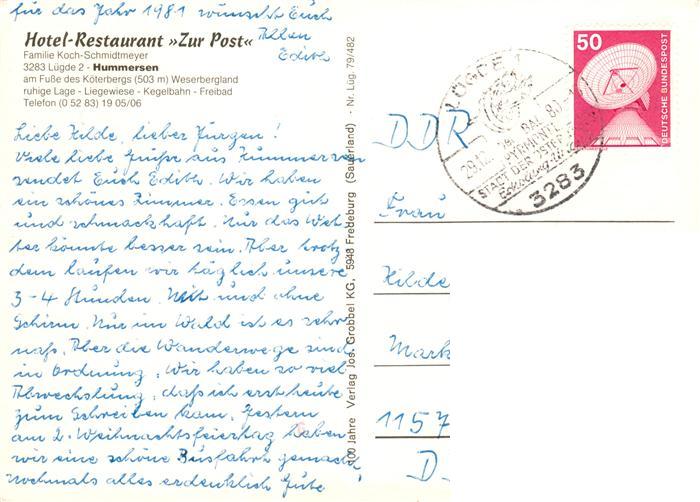 für das Jahr 1981 wünscht Euch
Allen
Edith
Hotel-Restaurant »Zur Post«
Familie Koch-Schmidtmeyer
3283 Lügde 2 - Hummersen
am Fuße des Köterbergs (503 m) Weserbergland
ruhige Lage - Liegewiese - Kegelbahn - Freibad
Telefon (0 52 83) 19 05/06
Liebe Hilde, lieber Jürgen!
Viele liebe Grüße aus Hummersen
sendet Euch Edith. Wir haben
ein schönes Zimmer. Essen gut
und schmackhaft. Nur das Wet-
ter könnte besser sein. Aber trotz
dem laufen wir täglich unsere
3-4 Stunden. Mit und ohne
Schirm. Nur im Wald ist es sehr
naß. Aber die Wanderwege sind
in Ordnung. Wir haben so viel
Abwechslung, daß ich erst heute
zum Schreiben kam. Gestern
am 2. Weihnachtsfeiertag haben
wir eine schöne Busfahrt gemacht
Nochmals alles erdenklich Gute
100 Jahre Verlag Jos. Grobbel KG., 5948 Fredeburg (Sauerland) · Nr. Lüg. 79/482
LÜGDE 1
28.12.80
BAD PYRMONT
STADT DER OSTER
3283
50
DEUTSCHE BUNDESPOST
DDR
Frau
Hilde
Mark
1157
D.